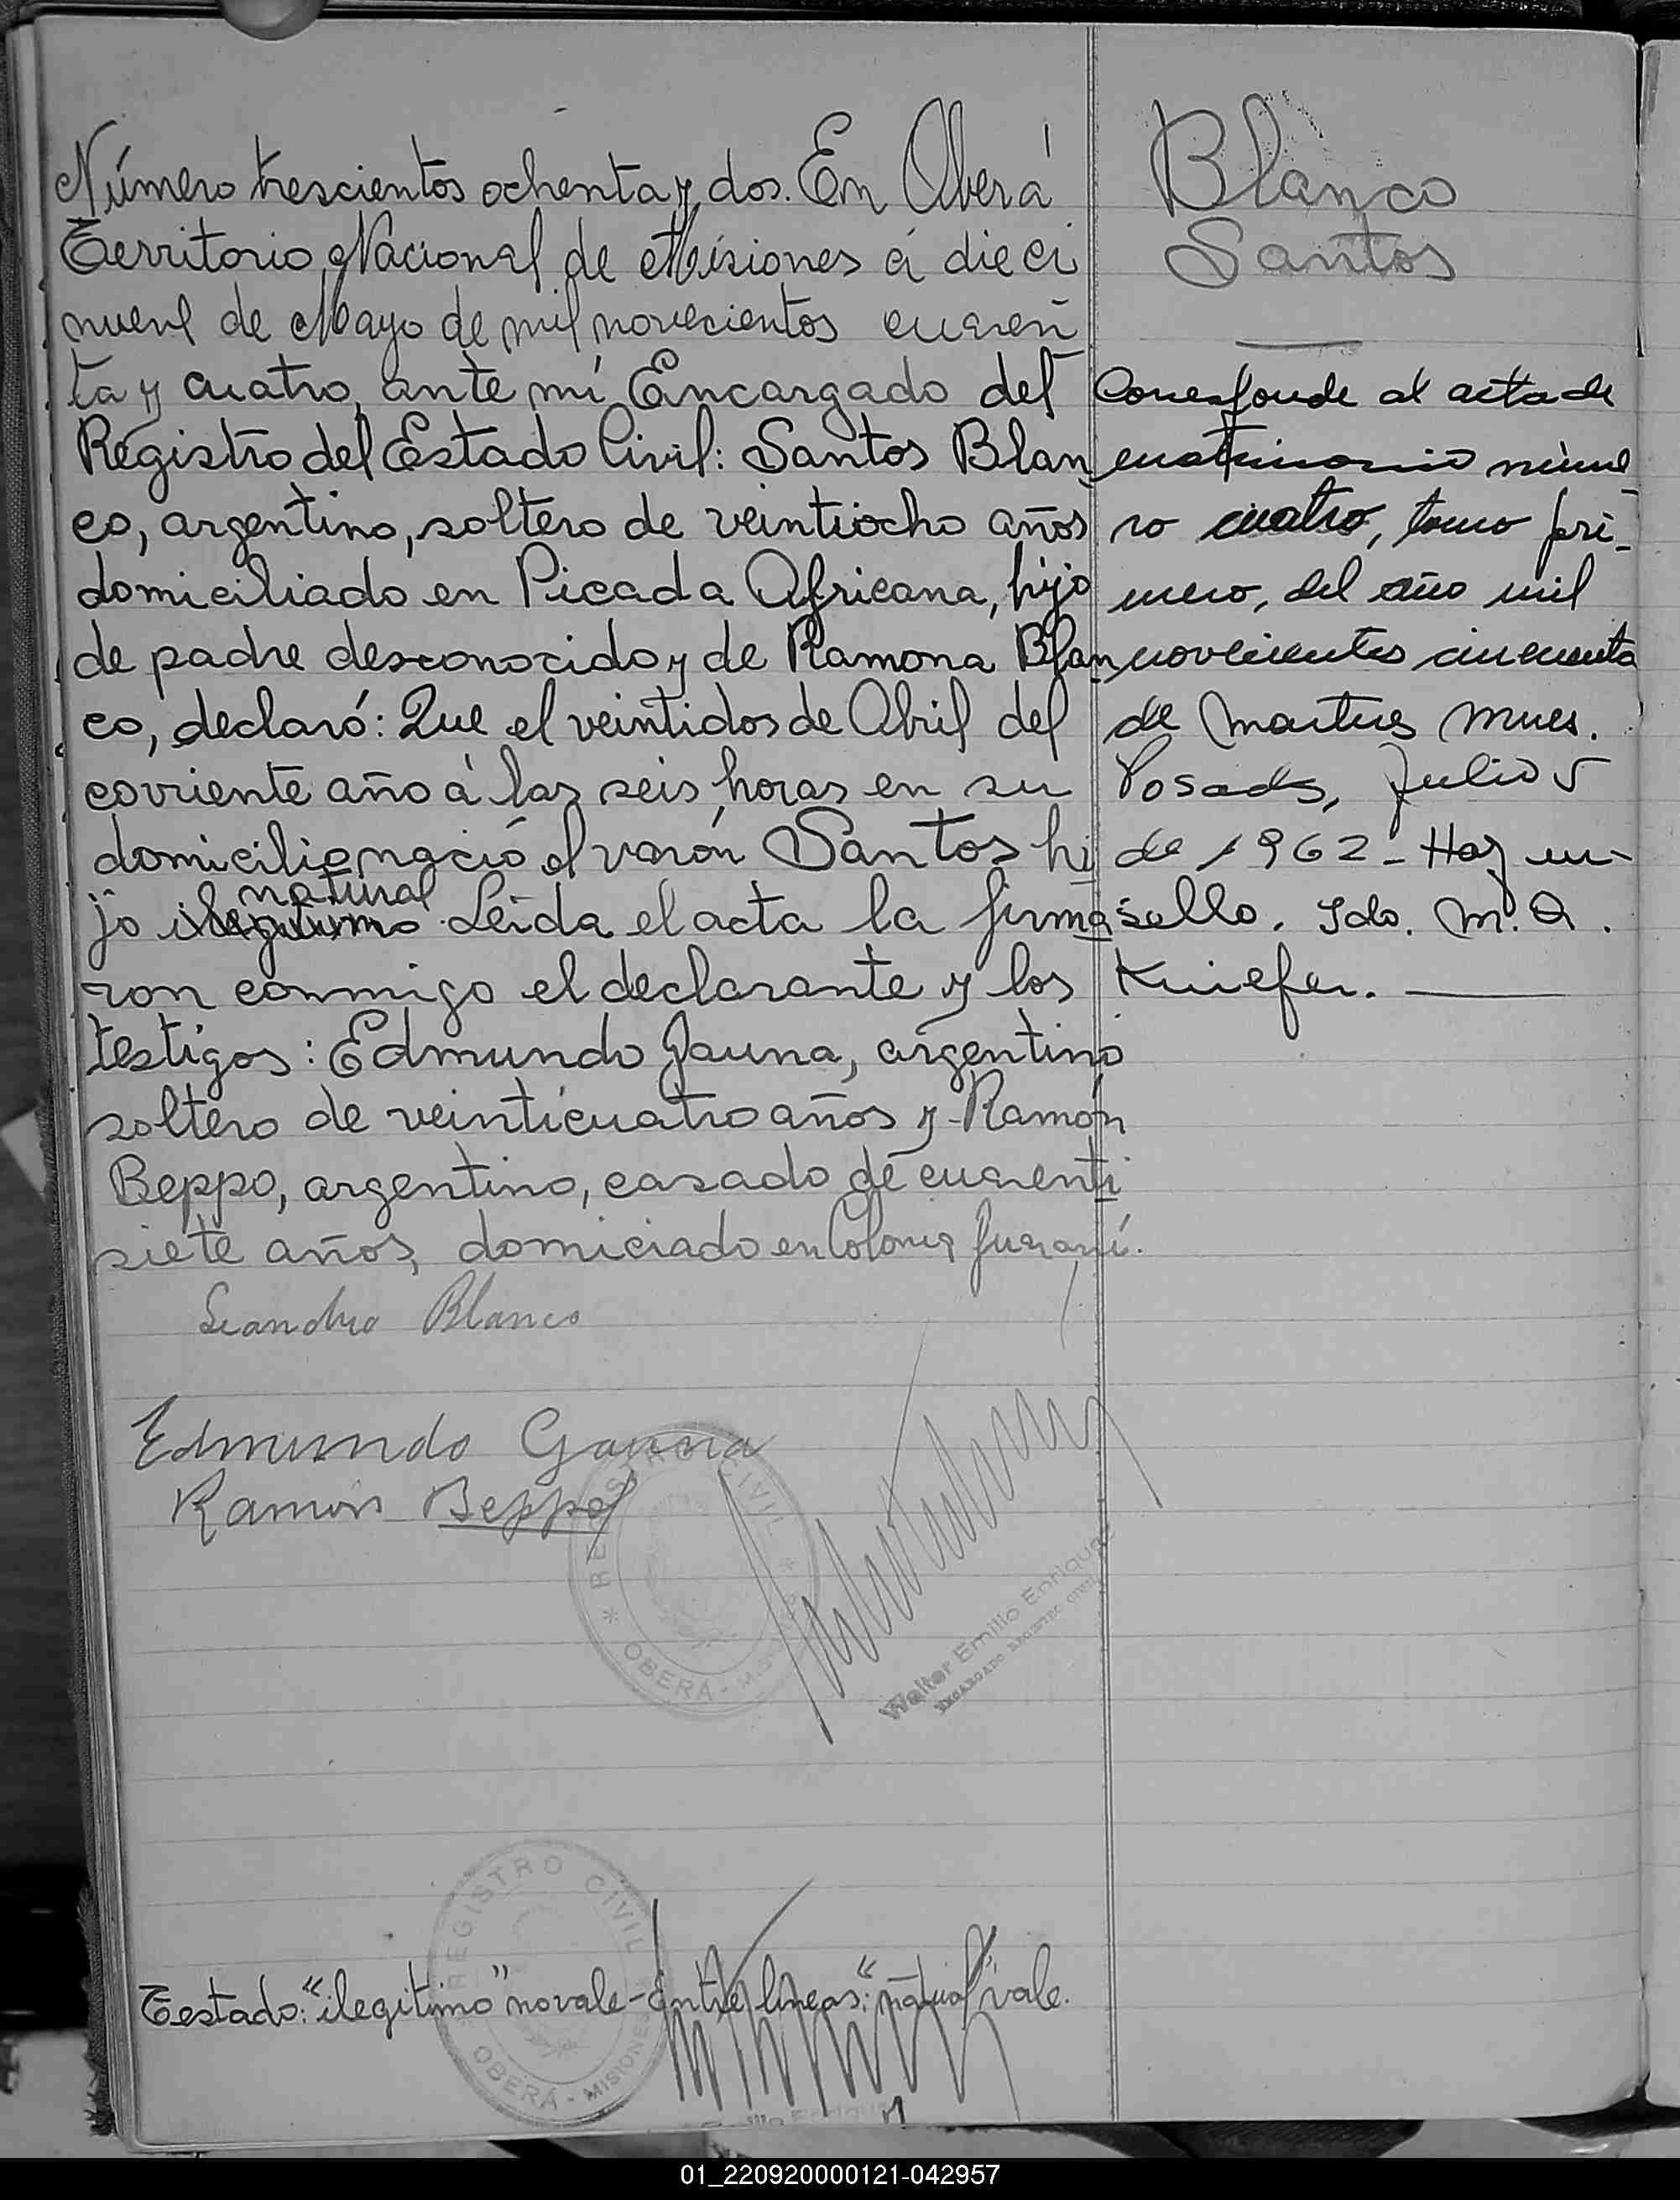 Número trescientos ochenta y dos. En Oberá
Territorio Nacional de Misiones á dieci
nueve de Mayo de mil novecientos cuaren
ta y cuatro, ante mi Encargado del
Registro del Estado Civil: Santos Blan
co, argentino, soltero de veintiocho años
domiciliado en Picada Africana, hijo
de padre desconocido y de Ramona Blan
co, declaró: Que el veintidos de Abril del
corriente año á las seis horas en su
domicilio nació el varón Santos hi
natural
jo ilegitimo Leida el acta la firma
ron conmigo el declarante y los
testigos: Edmundo Gauna, argentino
soltero de veinticuatro años y Ramón
Beppo, argentino, casado de cuarenti
siete años, domiciado en Colonia Guaraní.
Leandro Blanco
Edmundo Gauna
Ramon Beppo
REGISTRO CIVIL
OBERÁ - MISIONES
Walter Emilio Enrique
ENCARGADO REGISTRO CIVIL
REGISTRO CIVIL
OBERÁ - MISIONES
Testado: "ilegitimo" no vale - Entre lineas: "natural" vale.
Blanco
Santos
Corresponde al acta de
matrimonio núme
ro cuatro, tomo pri-
mero, del año mil
novecientos cincuenta
de Mártires Mnes.
Posadas, Julio 5
de 1962 - Hay un
sello. Fdo. M. A.
Kniefer.
01_220920000121-042957